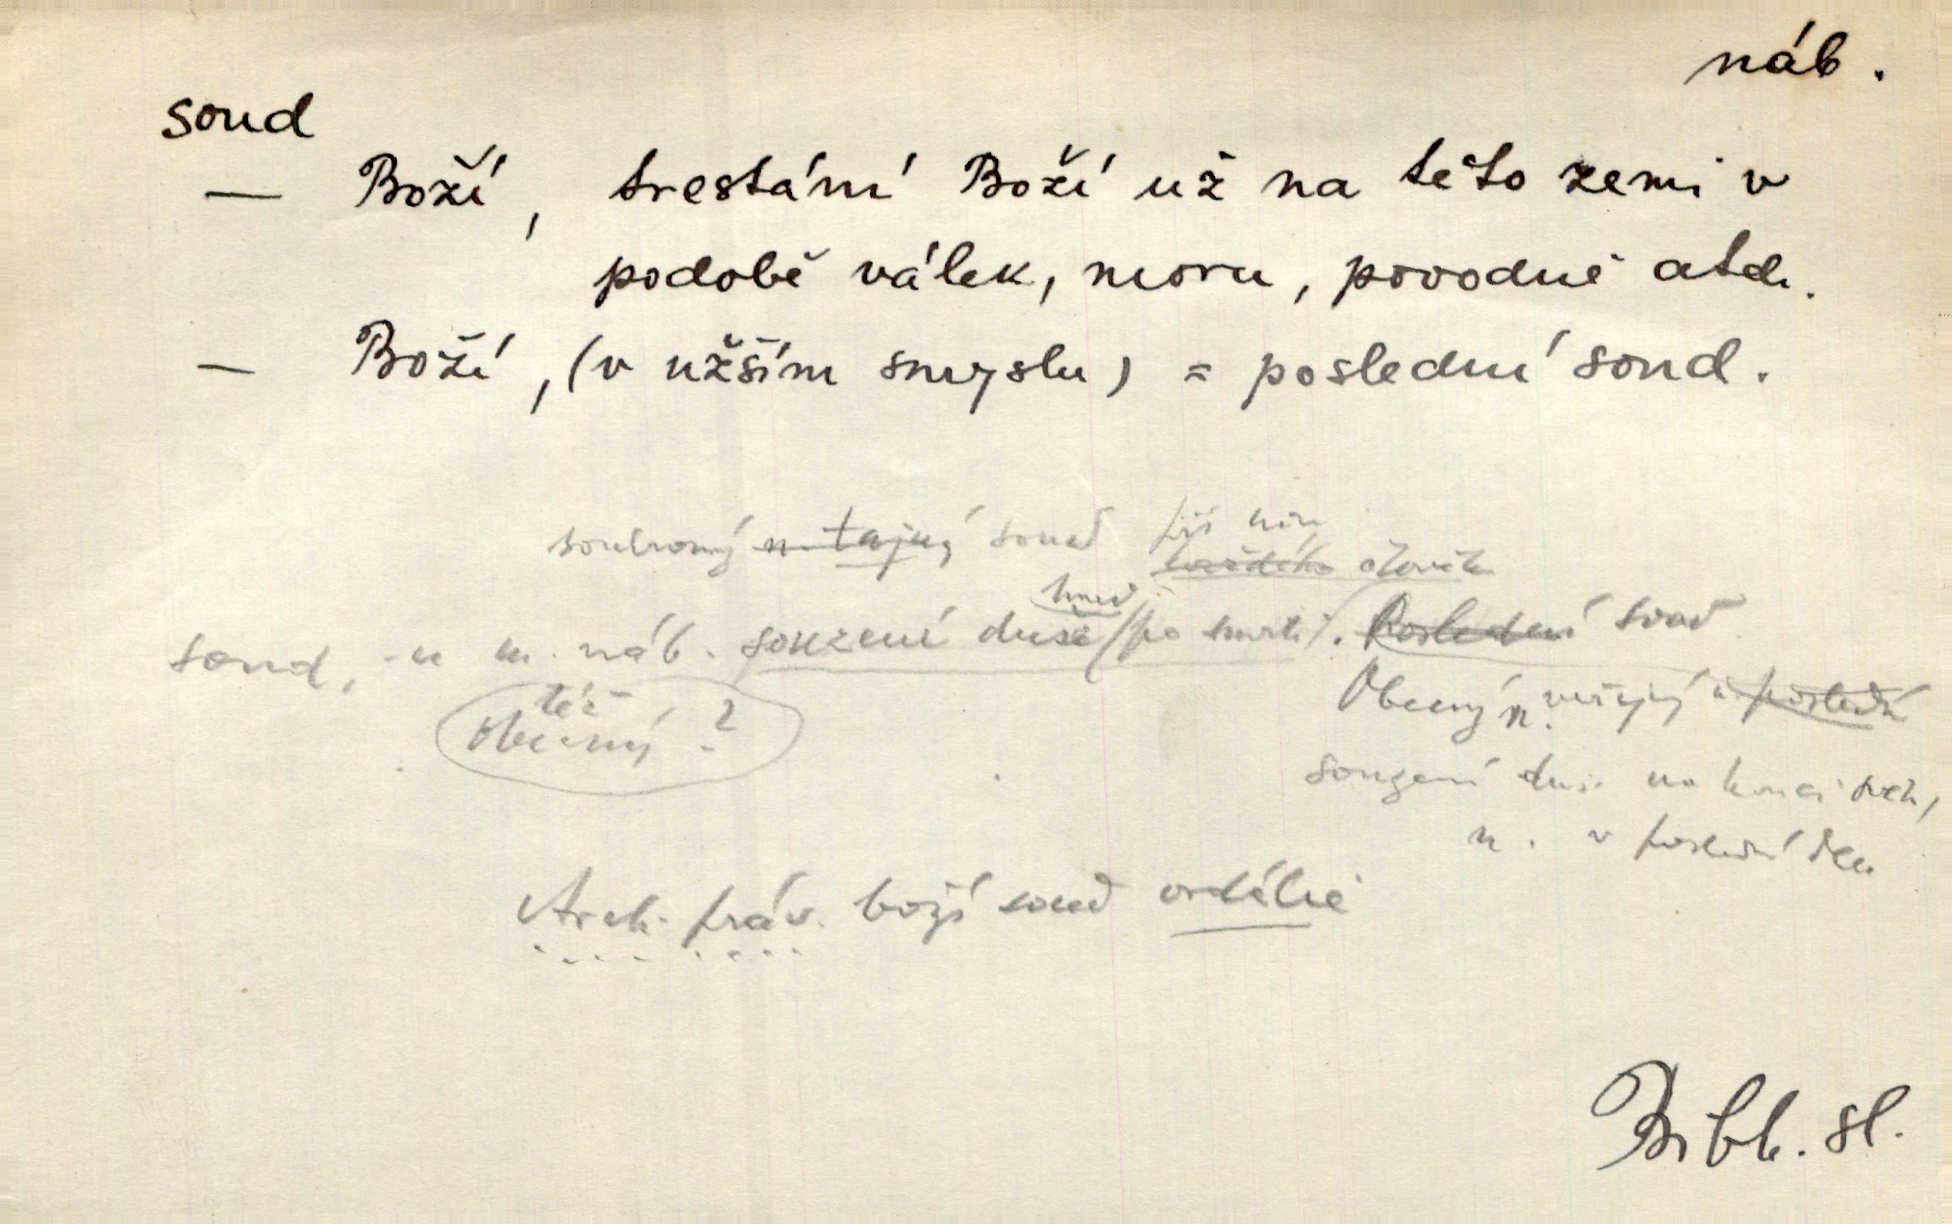 náb.
soud
— Boží, trestání Boží už na této zemi v
podobě válek, moru, povodně atd.
— Boží, (v užším smyslu) = poslední soud.
soukromý n. tajný soud
každého člověka
hned
soud, -u m. náb. souzení duše (po smrti). Poslední soud
též
obecný ?
Obecný n. veřejný i poslední
souzení duší na konci světa,
n. v poslední den
Arch. práv. boží soud ordálie
Bibl. sl.